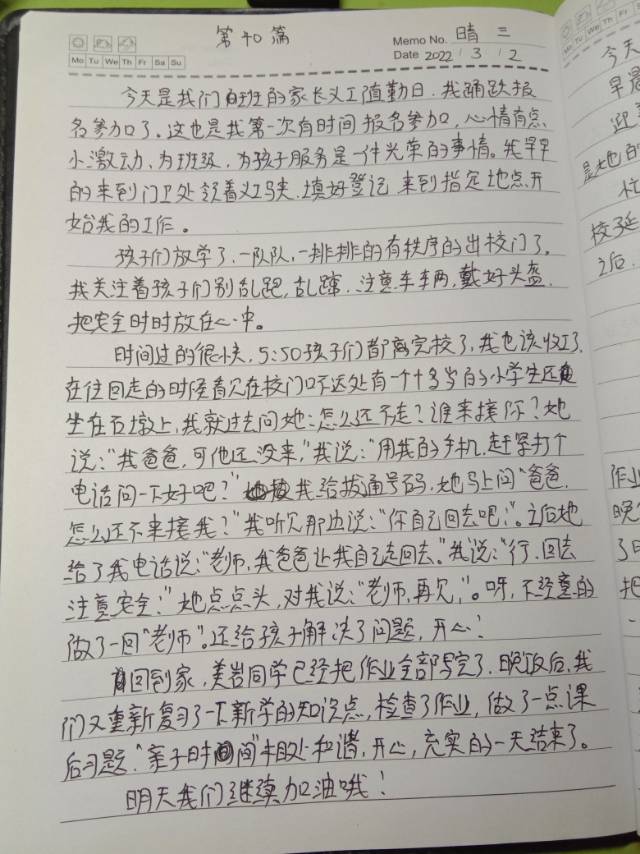 第40篇
Memo No. 晴 三
Mo Tu We Th Fr Sa Su
Date 2022 / 3 / 2
今天是我们班的家长义工值勤日,我踊跃报
名参加了。这也是我第一次有时间报名参加,心情有点
小激动,为班级,为孩子服务是一件光荣的事情。我早早
的来到门卫处领着义工马夹,填好登记,来到指定地点开
始我的工作。
孩子们放学了,一队队,一排排的有秩序的出校门了。
我关注着孩子们别乱跑,乱蹿,注意车辆,戴好头盔,
把安全时时放在心中。
时间过的很快,5:50孩子们都离完校了,我也该收工了,
在往回走的时侯看见在校门口不远处有一个十多岁的小学生还
坐在石墩上,我就过去问她:怎么还不走?谁来接你?她
说:“我爸爸,可他还没来,”我说:“用我的手机,赶紧打个
电话问一下好吧?”我给拨通号码,她马上问“爸爸,
怎么还不来接我?”我听见那边说:“你自己回去吧!”。之后她
给了我电话说:“老师,我爸爸让我自己走回去。”我说:“行,回去
注意安全!”她点点头,对我说:“老师,再见!”。呀,不经意的
做了一回“老师”。还给孩子解决了问题,开心!
回到家,美岩同学已经把作业全部写完了,晚饭后,我
们又重新复习了一下新学的知识点,检查了作业,做了一点课
后习题,“亲子时间”相处和谐,开心,充实的一天结束了。
明天我们继续加油哦!
今天
早晨
迎
是她的
忙
校延
之后,
作业
晚
了
把